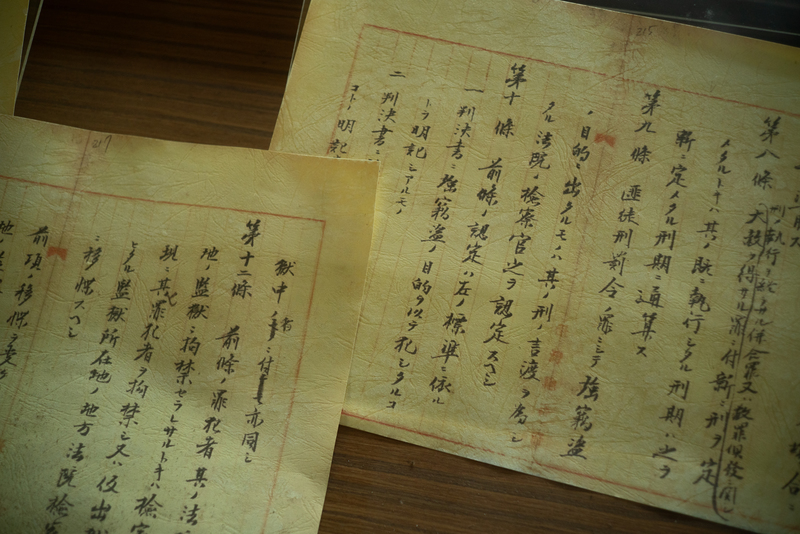 215
第八條
大赦ヲ得サル罪ニ付新ニ刑ヲ定
メタルトキハ其ノ既ニ執行シタル刑期ハ之ヲ
新ニ定メタル刑期ニ通算ス
第九條 匪徒刑罰令ノ罪ニシテ強竊盜
ノ目的ニ出タルモノハ其ノ刑ノ言渡ヲ為シ
タル法院ノ檢察官之ヲ認定スヘシ
第十條 前條ノ認定ハ左ノ標準ニ依ル
一 判決書ニ強竊盜ノ目的
トヲ明記シアルモノ
二 判決書ニ
コトノ明記
217
獄中ノ者ニ付亦同シ
第十二條 前條ノ罪犯者其ノ法
地ノ監獄ニ拘禁セラレサルトキハ檢
現ニ其罪犯者ヲ拘禁シ又ハ仮出
シタル監獄所在地ノ地方法院檢
ニ移牒スヘシ
前項ノ移牒ヲ受ケ